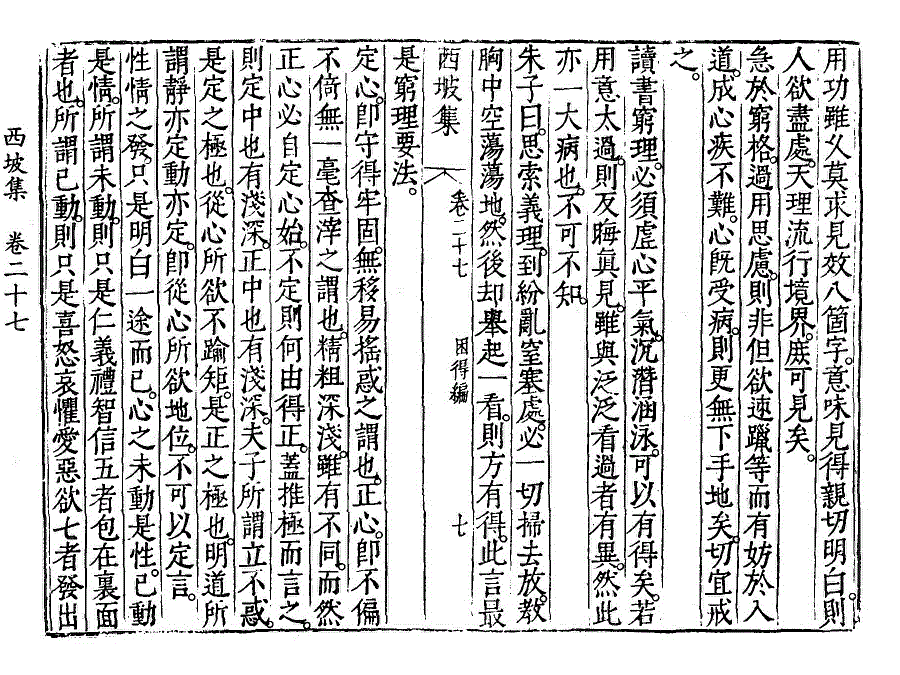 用功雖久莫求見效八箇字。意味見得親切明白。則
人欲盡處。天理流行境界。庶可見矣。
急於窮格。過用思慮。則非但欲速躐等而有妨於入
道。成心疾不難。心旣受病。則更無下手地矣。切宜戒
之。
讀書窮理。必須虛心平氣。沉潛涵泳。可以有得矣。若
用意太過。則反晦眞見。雖與泛泛看過者有異。然此
亦一大病也。不可不知。
朱子曰。思索義理。到紛亂窒塞處。必一切掃去放敎
胸中空蕩蕩地。然後却擧起一看。則方有得。此言最
西坡集 卷二十七 困得編 七
是窮理要法。
定心。卽守得牢固。無移易搖惑之謂也。正心。卽不偏
不倚無一毫查滓之謂也。精粗深淺。雖有不同。而然
正心必自定心始。不定則何由得正。蓋推極而言之。
則定中也有淺深。正中也有淺深。夫子所謂立不惑。
是定之極也。從心所欲不踰矩。是正之極也。明道所
謂靜亦定動亦定。卽從心所欲地位。不可以定言。
性情之發。只是明白一途而已。心之未動是性。已動
是情。所謂未動。則只是仁義禮智信五者包在裏面
者也。所謂已動。則只是喜怒哀懼愛惡欲七者發出
西坡集 卷二十七